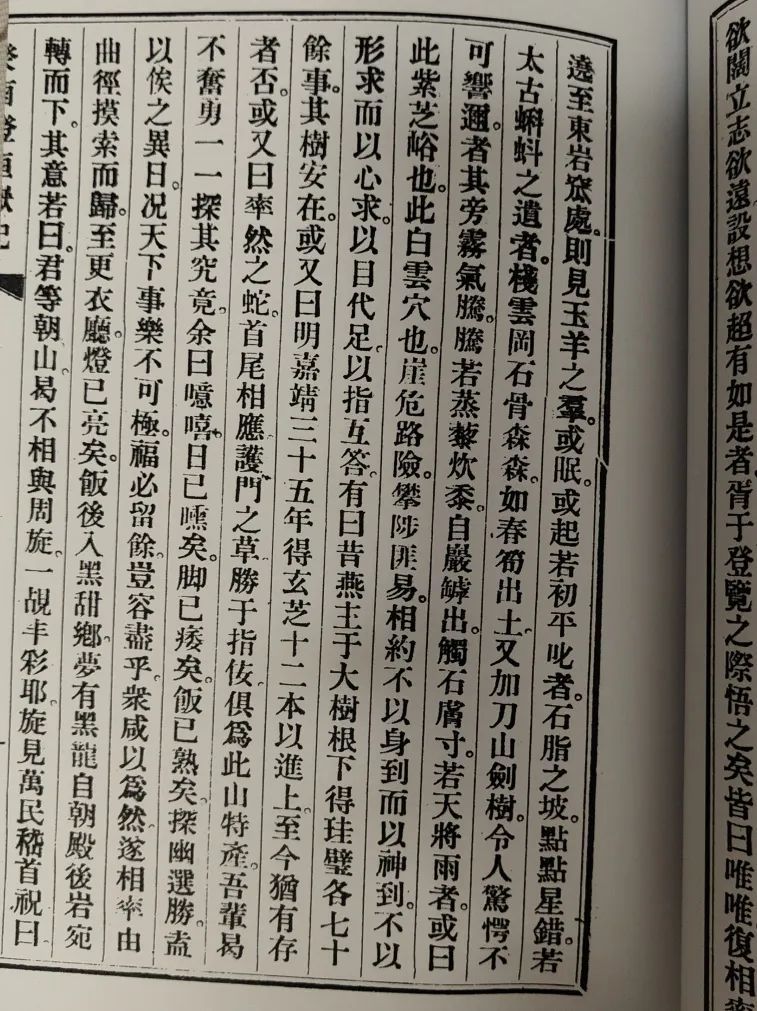 欲闊立志欲遠設想欲超有如是者胥于登覽之際悟之矣皆曰唯唯復相率
遶至東岩窊處。則見玉羊之羣。或眠。或起若初平叱者。石脂之坡。點點星錯。若
太古蝌蚪之遺者。棧雲岡石骨森森。如春筍出土。又加刀山劍樹。令人驚愕不
可嚮邇者其旁霧氣騰。騰若蒸藜炊黍。自巖罅出。觸石膚寸。若天將雨者。或曰
此紫芝峪也。此白雲穴也。崖危路險。攀陟匪易。相約不以身到而以神到。不以
形求而以心求。以目代足。以指互答。有曰昔燕主于大樹根下得珪璧各七十
餘事。其樹安在。或又曰明嘉靖三十五年得玄芝十二本以進上。至今猶有存
者否。或又曰率然之蛇。首尾相應護門之草勝于指佞俱爲此山特產。吾輩曷
不奮勇一一探其究竟。余曰噫嘻。日已曛矣。脚已痿矣。飯已熟矣。探幽選勝。盍
以俟之異日。况天下事樂不可極。福必留餘。豈容盡乎。衆咸以爲然。遂相率由
曲徑摸索而歸。至更衣廳。燈已亮矣。飯後入黑甜鄉。夢有黑龍自朝殿後岩宛
轉而下。其意若曰。君等朝山。曷不相與周旋。一覩丰彩耶。旋見萬民稽首祝曰
癸酉登恒嶽記